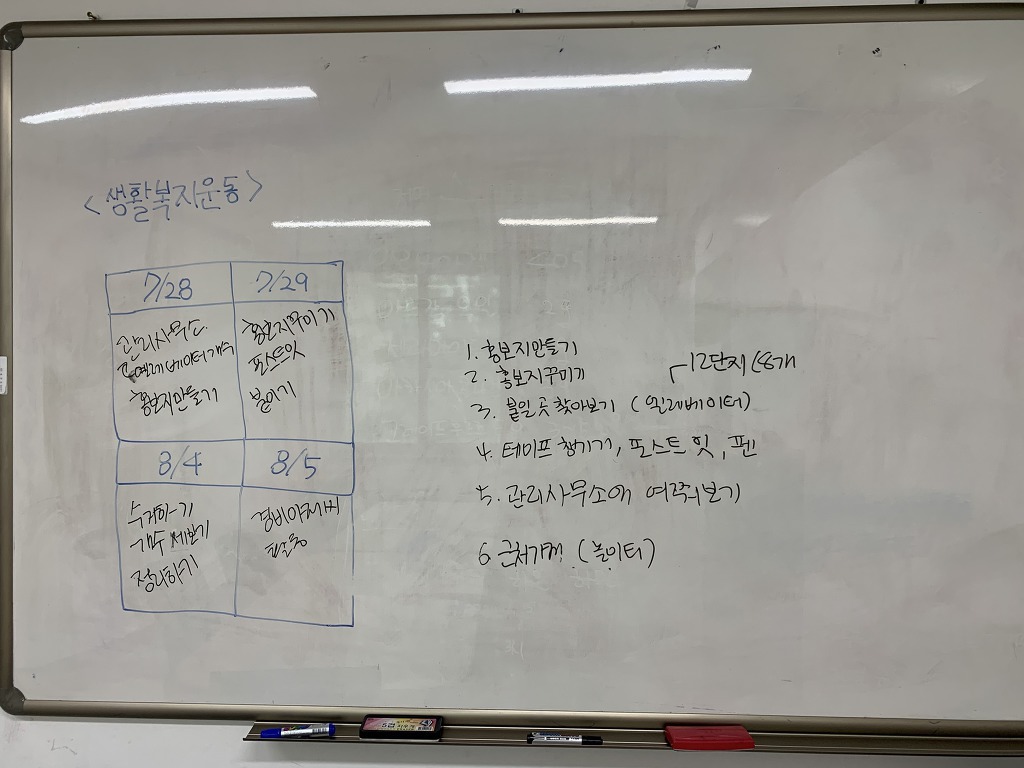 <생활복지운동>
7/28 7/29
관리사무소
엘레베이터개수
홍보지만들기
홍보지꾸미기
포스트잇
붙이기
8/4 8/5
수거하기
개수 세보기
정리하기
경비아저씨
1. 홍보지만들기
2. 홍보지꾸미기
12단지
3. 붙일 곳 찾아보기 (엘레베이터)
4. 테이프 챙기기, 포스트 잇, 펜
5. 관리사무소에 여쭤보기
6. 근처가게 (놀이터)